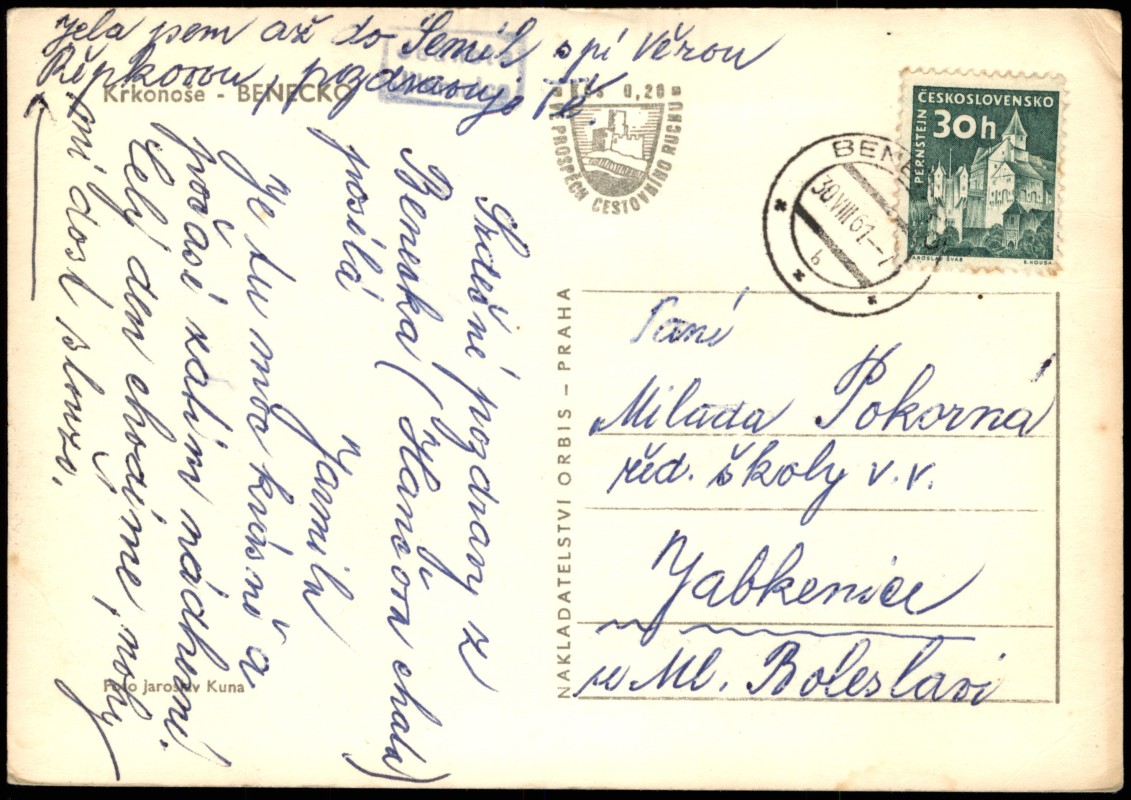 Jela jsem až do Semil s pí Věrou
Řepkovou, pozdravuje Tě.
Krkonoše - BENECKO
Kčs 0,20
V PROSPĚCH CESTOVNÍHO RUCHU
ČESKOSLOVENSKO
30h
PERNŠTEJN
JAROSLAV ŠVÁB
30.VIII.61-7
b
Srdečné pozdravy z
Benecka (Hančova chata)
posílá
Jarmila
Je tu moc krásně a
počasí zatím nádherné.
Celý den chodíme, nohy
mi dost slouží.
Foto Jaroslav Kuna
NAKLADATELSTVÍ ORBIS – PRAHA
Paní
Milada Pokorná
řed. školy v. v.
Jabkenice
u Ml. Boleslavi